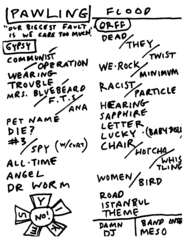 PAWLING
FLOOD
"OUR BIGGEST FAULT
IS WE CARE TOO MUCH"
GYPSY
COMMUNIST
/OPERATION
WEARING
TROUBLE/
MRS. BLUEBEARD
/F.T.S/
ANA
PET NAME
DIE?
#3
/SPY (W/CURT)
ALL-TIME
ANGEL
DR WORM
YES
NO!
OFFF
DEAD
/THEY
/TWIST
WE·ROCK/
MINIMUM
RACIST/
PARTICLE
HEARING
SAPPHIRE
LETTER
LUCKY (BABY DOLL)
CHAIR/
HOTCHA/
WHIS
TLING
WOMEN/BIRD
ROAD
ISTANBUL
THEME
DAMN
DJ
BAND INTS
MESO